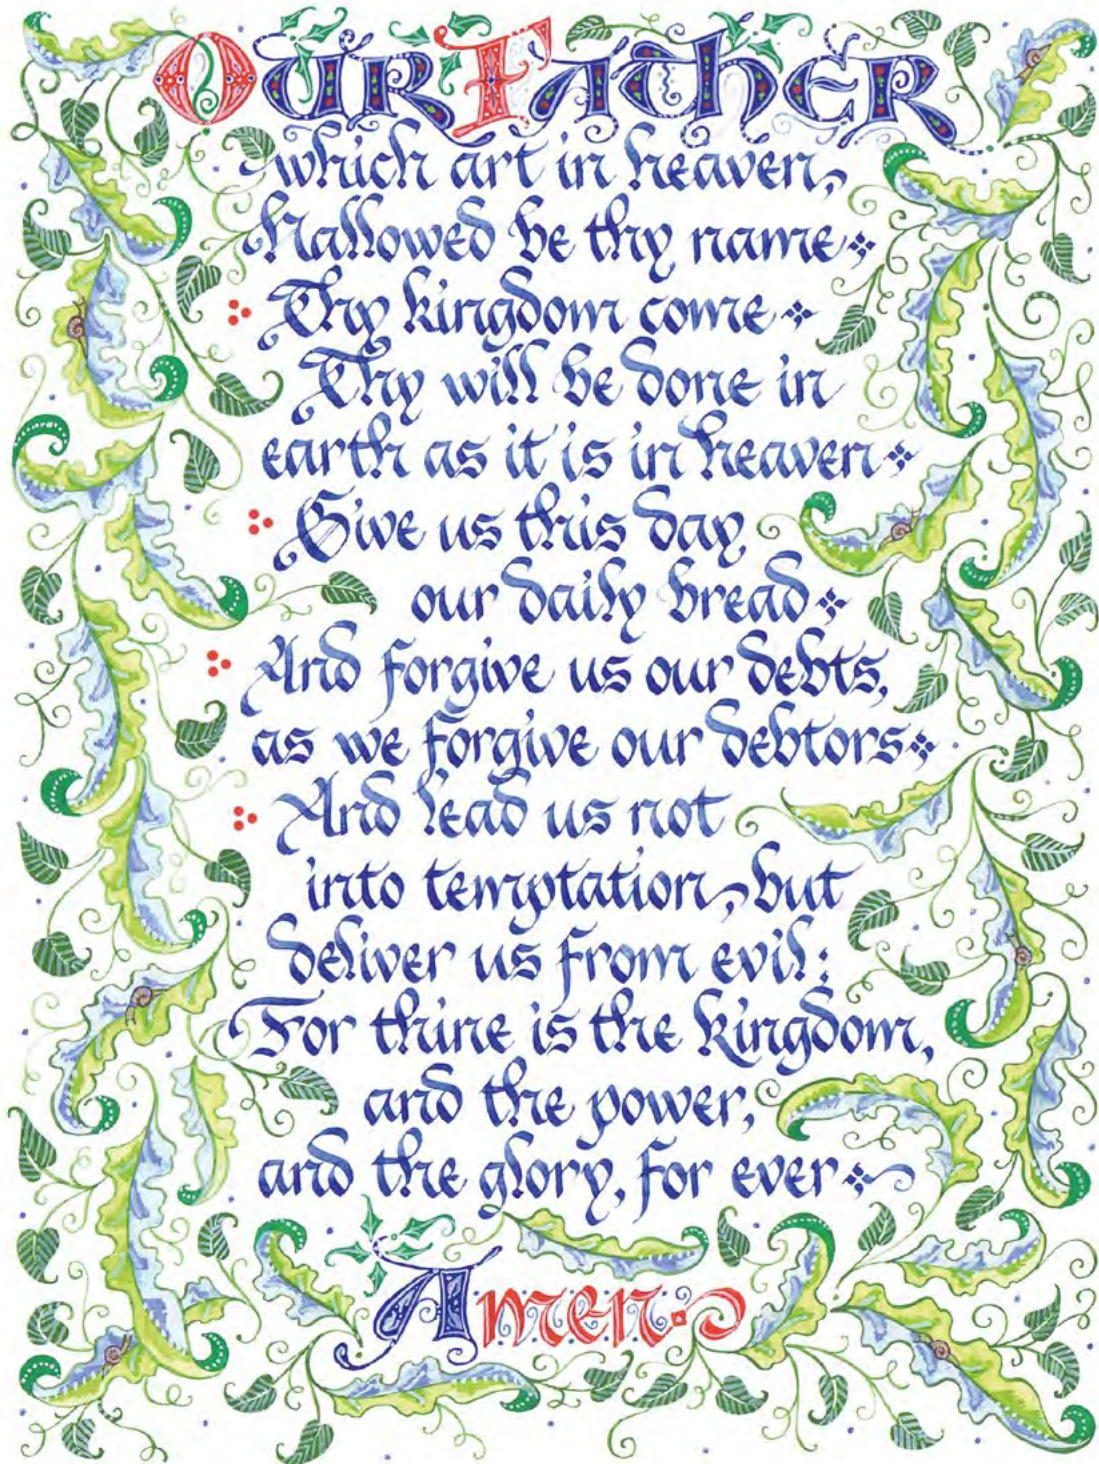 Our Father
which art in heaven,
Hallowed be thy name
Thy kingdom come
Thy will be done in
earth as it is in heaven
Give us this day
our daily bread
And forgive us our debts,
as we forgive our debtors
And lead us not
into temptation, but
deliver us from evil:
For thine is the kingdom,
and the power,
and the glory, for ever
Amen.